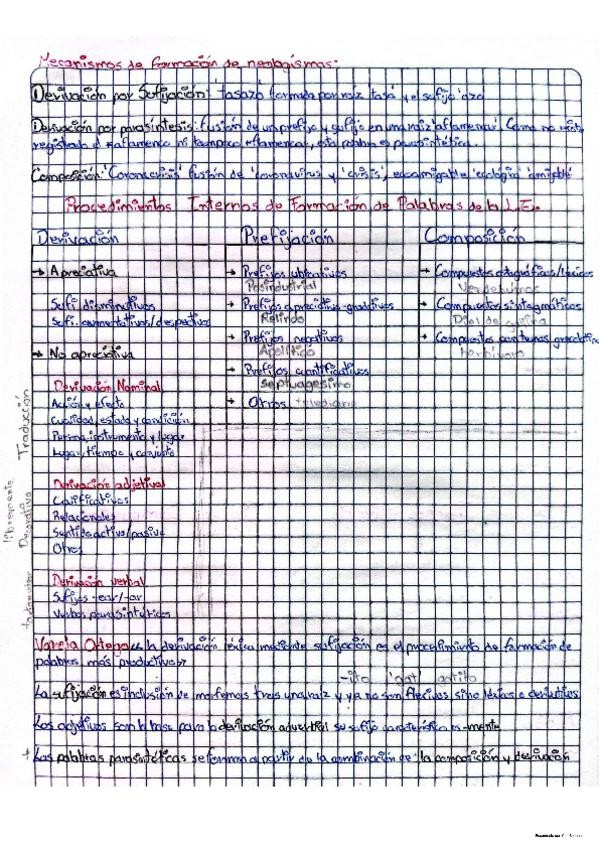 Mecanismos de formación de neologismos:
Derivación por Sufijación: 'Tasazo' formada por raíz 'tasa' y el sufijo 'azo'
Derivación por parasíntesis: fusión de un prefijo y sufijo en una raíz 'aflamencar'. Como no está
registrado el *aflamenco ni tampoco *flamencar, esta palabra es parasintética.
Composición: 'Coronacrisis' fusión de 'coronavirus' y 'crisis', ecoamigable 'ecología' 'amigable'
Procedimientos Internos de Formación de Palabras de la L.E.
Derivación Prefijación Composición
→ Apreciativa → Prefijos ubicativos → Compuestos ortográficos/léxicos
Posindustrial Verdeturas
Sufi. diminutivos → Prefijos apreciativo-gradativos → Compuestos sintagmáticos
Sufi. aumentativos/despectivos Relindo
→ Prefijos negativos → Compuestos por temas grecolatinos
→ No apreciativa Apolítico herbívoro
→ Prefijos cuantificativos
Derivación Nominal septuagésimo
Acción y efecto → Otros
Cualidad, estado y condición
Persona, instrumento y lugar
Lugar, tiempo y conjunto
Derivación adjetival
Calificativos
Relacionales
Sentido activo/pasivo
Otros
Derivación verbal
Sufijos -ear/-ar
Verbos parasintéticos
Traducción
libremente
Varela Ortega << la derivación léxica mediante sufijación es el procedimiento de formación de
palabras más productivo>>
-ito 'gat' gatito
La sufijación es inclusión de morfemas tras una raíz y ya no son flexivos sino léxicos o derivativos
Los adjetivos son la base para la derivación adverbial su sufijo característico es -mente
+ Las palabras parasintéticas se forman a partir de la combinación de la composición y derivación